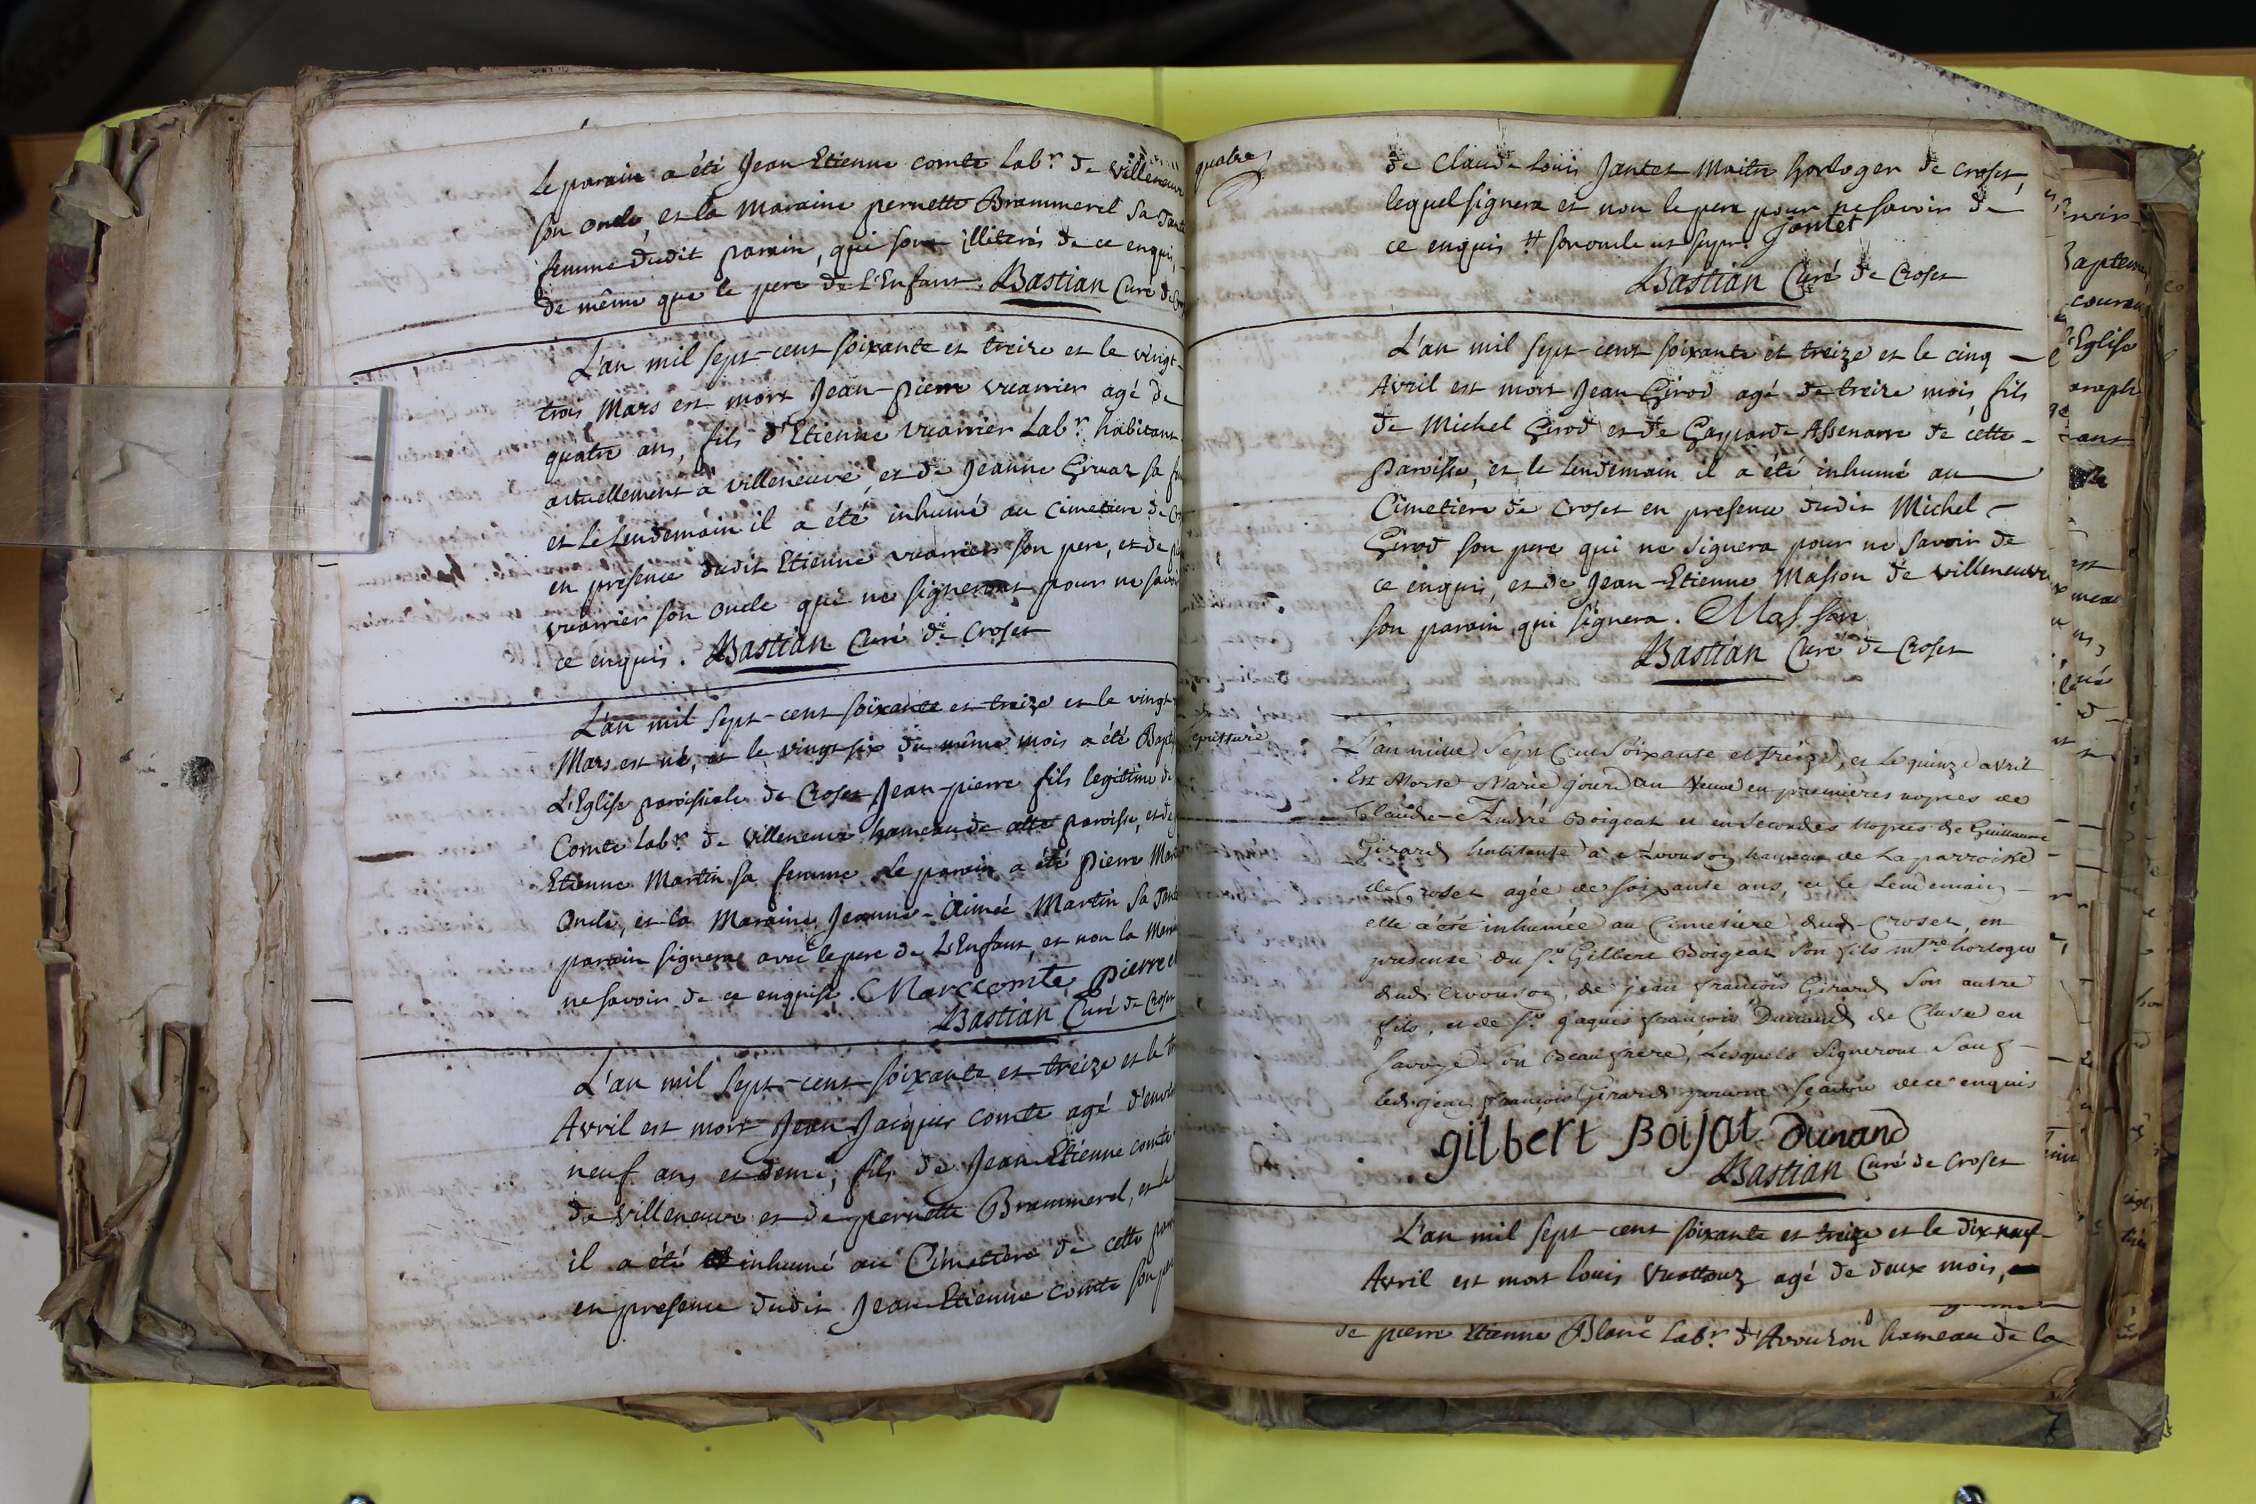 Le parain a été Jean Etienne comte Lab.r de villeneuve
son oncle, et la maraine pernette Brammerel sa Tante
femme dudit parain, qui sont illiterés de ce enquis,
de même que le pere de L'Enfant. Bastian Curé de
L'an mil sept-cent soixante et treize et le vingt-
trois Mars est mort Jean-pierre vuarrier agé de
quatre ans, fils d'Etienne vuarrier Lab.r habitant
actuellement a villeneuve, et de Jeanne Gruaz sa
et Le Lendemain il a été inhumé au cimetiere de
en presence dudit Etienne vuarrier son pere, et de
vuarrier son oncle qui ne signeront pour ne savoir
ce enquis. Bastian Curé de Croset
L'an mil sept-cent soixante et treize et le vingt-
Mars est né, et le vingt six du même mois a été Bapt
L'Eglise paroissiale de Croset Jean-pierre fils legitime de
Comte Lab.r de villeneuve hameau de cette paroisse, et de
Etienne Martin sa femme. Le parain a été pierre
Oncle, et la Maraine Jeanne-Aimée Martin sa Tante
parain signera avec le pere de L'Enfant, et non la
ne savoir de ce enquise. Marc comte Pierre
Bastian Curé de Croset
L'an mil sept-cent soixante et treize et le
Avril est mort Jean Jacques comte agé d'environ
neuf ans et demi, fils de Jean Etienne comte
de villeneuve et de pernette Brammerel, et le
il a été inhumé au Cimetiere de cette
en presence dudit Jean Etienne comte son
quatre
de Claude Louis Jantet Maitre horloger de croset,
lequel signera et non le pere pour ne savoir de
ce enquis # son oncle ut supr. Jantet
Bastian Curé de Croset
L'an mil sept-cent soixante et treize et le cinq
Avril est mort Jean Girod agé de treize mois, fils
de Michel Girod et de Gasparde Assenarre de cette
Paroisse, et le Lendemain il a été inhumé au
Cimetiere de Croset en presence dudit Michel
Girod son pere qui ne signera pour ne savoir de
ce enquis, et de Jean-Etienne Masson de villeneuve
son parain qui signera. Masson
Bastian Curé de Croset
sepulture
L'an mille Sept Cent Soixante et treize, et le quinze avril
Est Morte Marie gourdau Veuve en premieres nopces de
Claude-André Boigeat et en Secondes Nopces de Guillaume
Girard habitante a Avouson hameau de La parroisse
de Croset agée de soixante ans, et le Lendemain
elle a été inhumée au Cimetiere dud. Croset, en
presence du S.r Gilbert Boigeat Son fils m.tre horloger
dud. Avouson, de jean françois Girard Son autre
fils, et de S.r jaques françois Dunand de Cluse en
Savoye Son Beaufrere, Lesquels Signeront Sauf
led. jean françois Girard pour ne scavoir de ce enquis
gilbert Boijat Dunand
Bastian Curé de Croset
L'an mil sept-cent soixante et treize et le dix neuf
Avril est mort Louis Vuattouz agé de deux mois,
de pierre Etienne Blanc Lab.r d'Avouson hameau de la